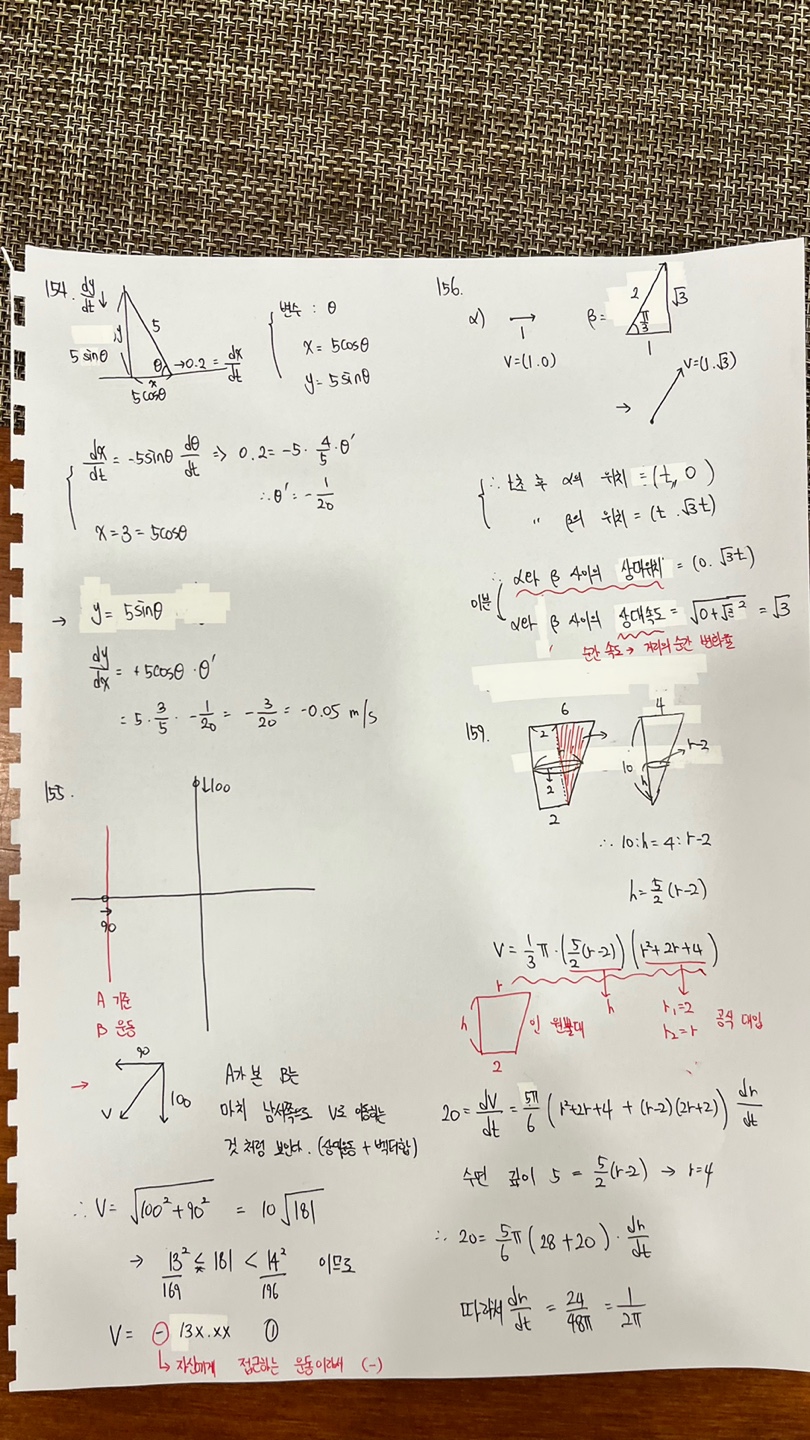 154. dy/dt↓
y 5
5sinθ θ →0.2 = dx/dt
x
5cosθ
변수 : θ
x = 5cosθ
y = 5sinθ
dx/dt = -5sinθ dθ/dt => 0.2 = -5 · 4/5 · θ′
∴ θ′ = - 1/20
x = 3 = 5cosθ
→ y = 5sinθ
dy/dx = +5cosθ · θ′
= 5 · 3/5 · - 1/20 = - 3/20 = -0.05 m/s
155.
↓100
→
90
A 기준
B 운동
→ 90
V 100
A가 본 B는
마치 남서쪽으로 V로 이동하는
것 처럼 보인다. (상대운동 + 벡터합)
∴ V = √(100² + 90²) = 10√181
→ 13² ≤ 181 < 14² 이므로
169 196
V = ⊖ 13x.xx ①
↳ 자신에게 접근하는 운동이라서 (-)
156.
α) → β= 2 √3
1 π/3
V=(1.0) 1
→ V=(1.√3)
∴ t초 후 α의 위치 = (t, 0)
〃 β의 위치 = (t . √3t)
∴ α와 β 사이의 상대위치 = (0. √3t)
미분
α와 β 사이의 상대속도 = √(0+√3²) = √3
순간 속도 → 거리의 순간 변화율
159. 6 4
2 r-2
2 10 h
2
∴ 10:h = 4:r-2
h = 5/2 (r-2)
V = 1/3 π · (5/2 (r-2)) (r²+2r+4)
r h r₁=2 공식 대입
h 인 원뿔대 r₂=r
2
20 = dV/dt = 5π/6 (r²+2r+4 + (r-2)(2r+2)) dr/dt
수면 깊이 5 = 5/2 (r-2) → r=4
∴ 20 = 5/6 π (28+20) · dr/dt
따라서 dr/dt = 24/48π = 1/2π